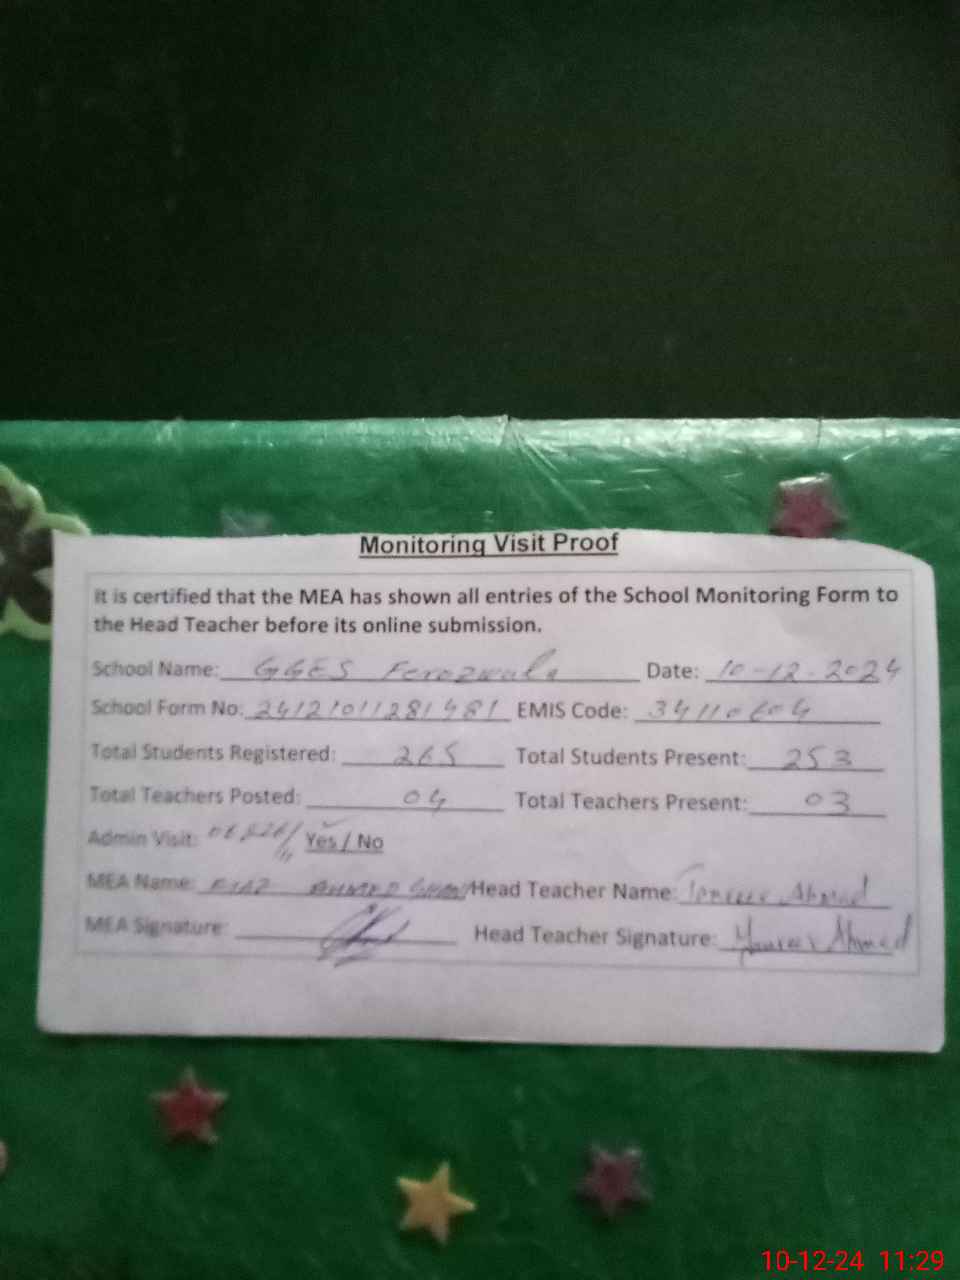 Monitoring Visit Proof
It is certified that the MEA has shown all entries of the School Monitoring Form to
the Head Teacher before its online submission.
School Name: GGES Ferozwala Date: 10-12-2024
School Form No: 24121011281481 EMIS Code: 34110604
Total Students Registered: 265 Total Students Present: 253
Total Teachers Posted: 04 Total Teachers Present: 03
Admin Visit: Yes / No
MEA Name: AHMED Head Teacher Name: Ahmed
MEA Signature: Head Teacher Signature: Ahmed
10-12-24 11:29